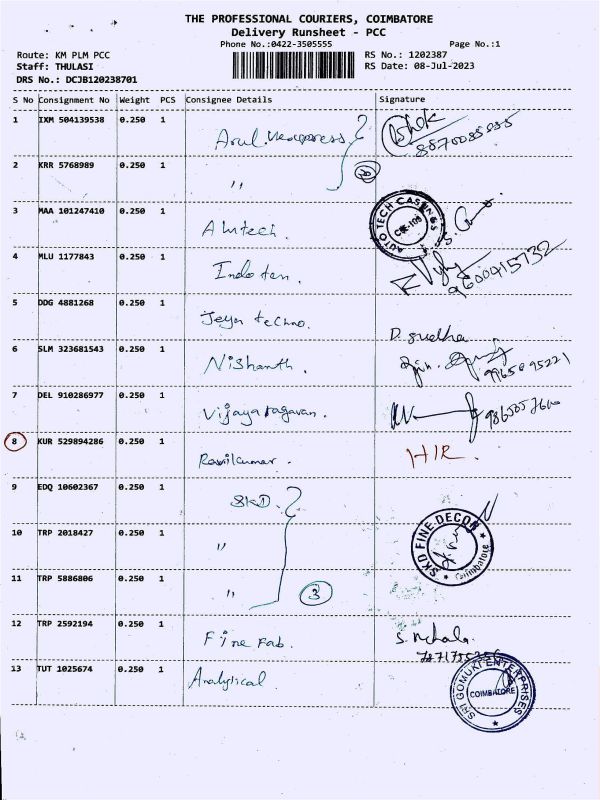 THE PROFESSIONAL COURIERS, COIMBATORE
Delivery Runsheet - PCC
Phone No.:0422-3505555 Page No.:1
Route: KM PLM PCC RS No.: 1202387
Staff: THULASI RS Date: 08-Jul-2023
DRS No.: DCJB120238701
S No Consignment No Weight PCS Consignee Details Signature
1 IXM 504139538 0.250 1 Arul Ashok
8870085885
2 KRR 5768989 0.250 1 "
3 MAA 101247410 0.250 1 AUTO TECH CASTINGS
4 MLU 1177843 0.250 1 Indo ten. 9600415732
5 DDG 4881268 0.250 1 Jeya techno. D. sudha
6 SLM 323681543 0.250 1 Nishanth.
7 DEL 910286977 0.250 1 Vijayaragavan.
8 KUR 529894286 0.250 1 Ravikumar. HIR.
9 EDQ 10602367 0.250 1 SKD.
10 TRP 2018427 0.250 1 " SKD FINE DECOR Coimbatore
11 TRP 5886806 0.250 1 " 3
12 TRP 2592194 0.250 1 Fine Fab.
13 TUT 1025674 0.250 1 Analytical SRI GOMUKI ENTERPRISES COIMBATORE